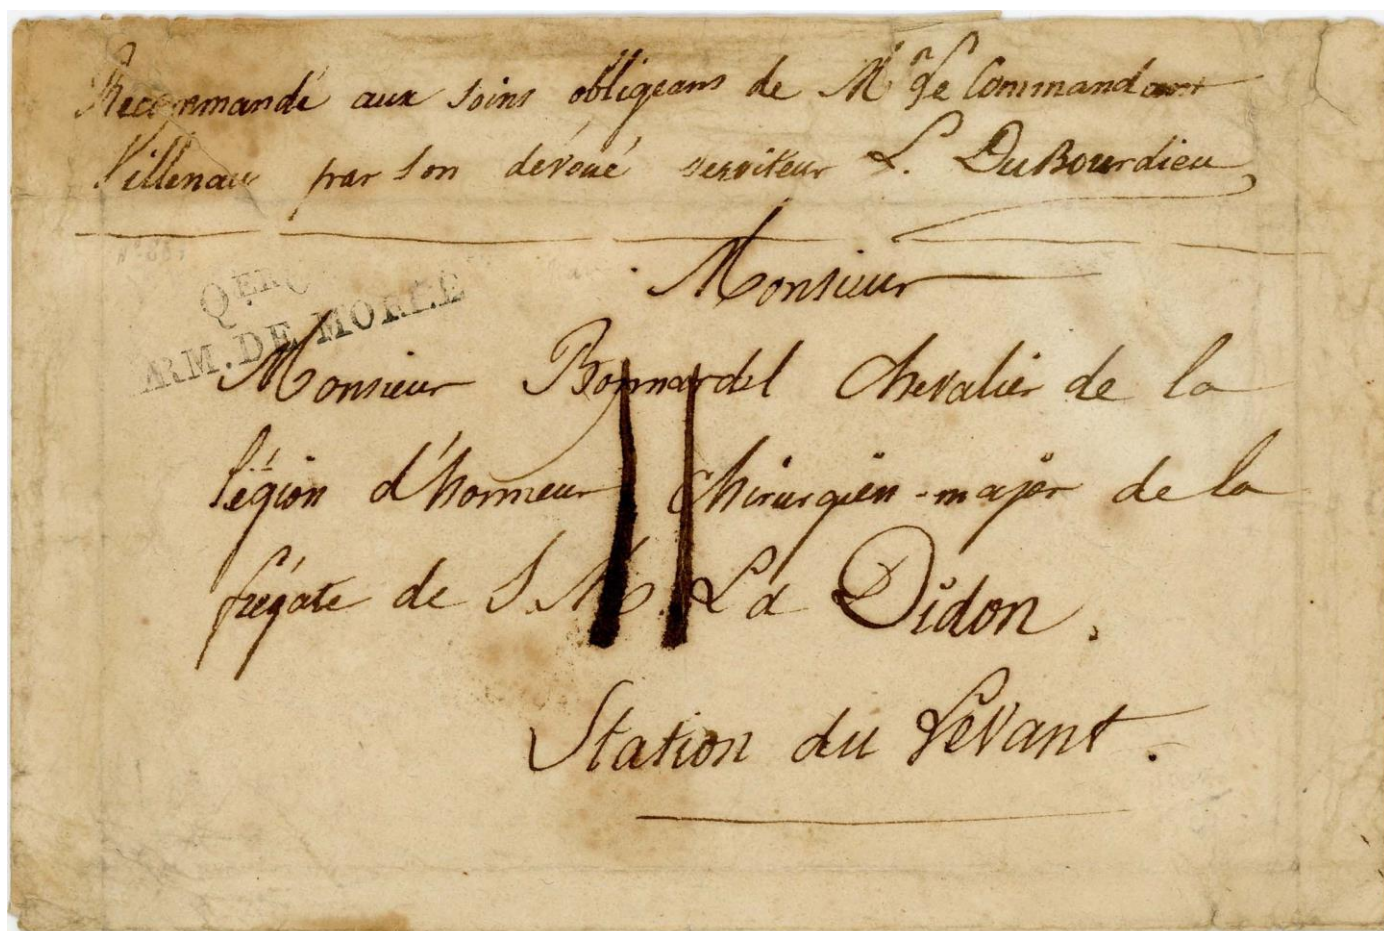 Recommandé aux soins obligeans de Mr Le Commandant
Villenau par son dévoué serviteur L. DuBourdieu
Monsieur
QER G
ARM. DE MORÉE
Monsieur Bonnardel Chevalier de la
légion d'honneur Chirurgien-major de la
frégate de S. M. La Didon.
Station du Levant.